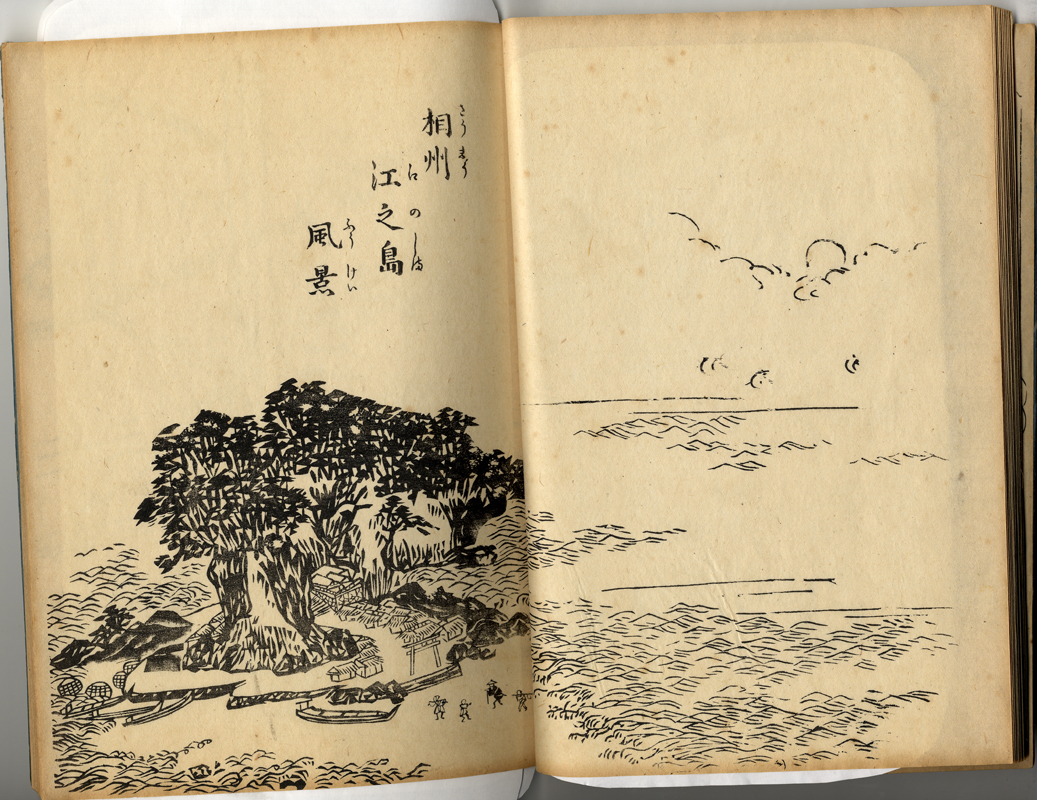 相州
さうしう
江之島
江のしま
風景
ふうけい